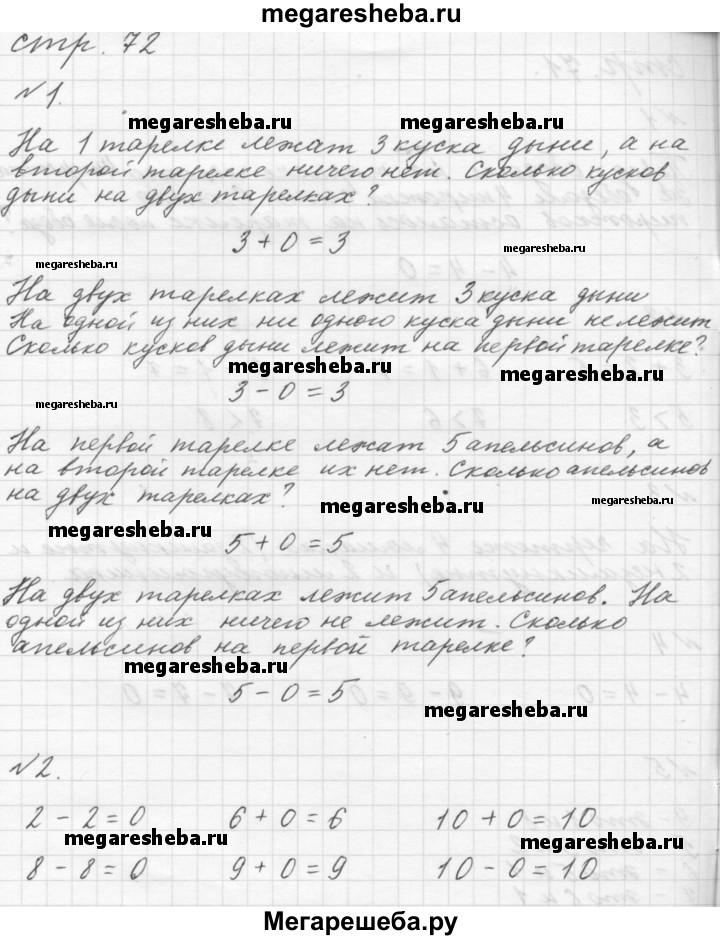 megaresheba.ru
стр. 72
№1.
megaresheba.ru megaresheba.ru
На 1 тарелке лежат 3 куска дыни, а на
второй тарелке ничего нет. Сколько кусков
дыни на двух тарелках?
3 + 0 = 3
megaresheba.ru
megaresheba.ru
На двух тарелках лежит 3 куска дыни
На одной из них ни одного куска дыни не лежит
Сколько кусков дыни лежит на первой тарелке?
megaresheba.ru megaresheba.ru
3 - 0 = 3
megaresheba.ru
На первой тарелке лежат 5 апельсинов, а
на второй тарелке их нет. Сколько апельсинов
на двух тарелках?
megaresheba.ru megaresheba.ru
megaresheba.ru
5 + 0 = 5
На двух тарелках лежит 5 апельсинов. На
одной из них ничего не лежит. Сколько
апельсинов на первой тарелке?
megaresheba.ru
5 - 0 = 5
megaresheba.ru
№2.
2 - 2 = 0 6 + 0 = 6 10 + 0 = 10
megaresheba.ru megaresheba.ru
8 - 8 = 0 9 + 0 = 9 10 - 0 = 10
Мегарешеба.ру